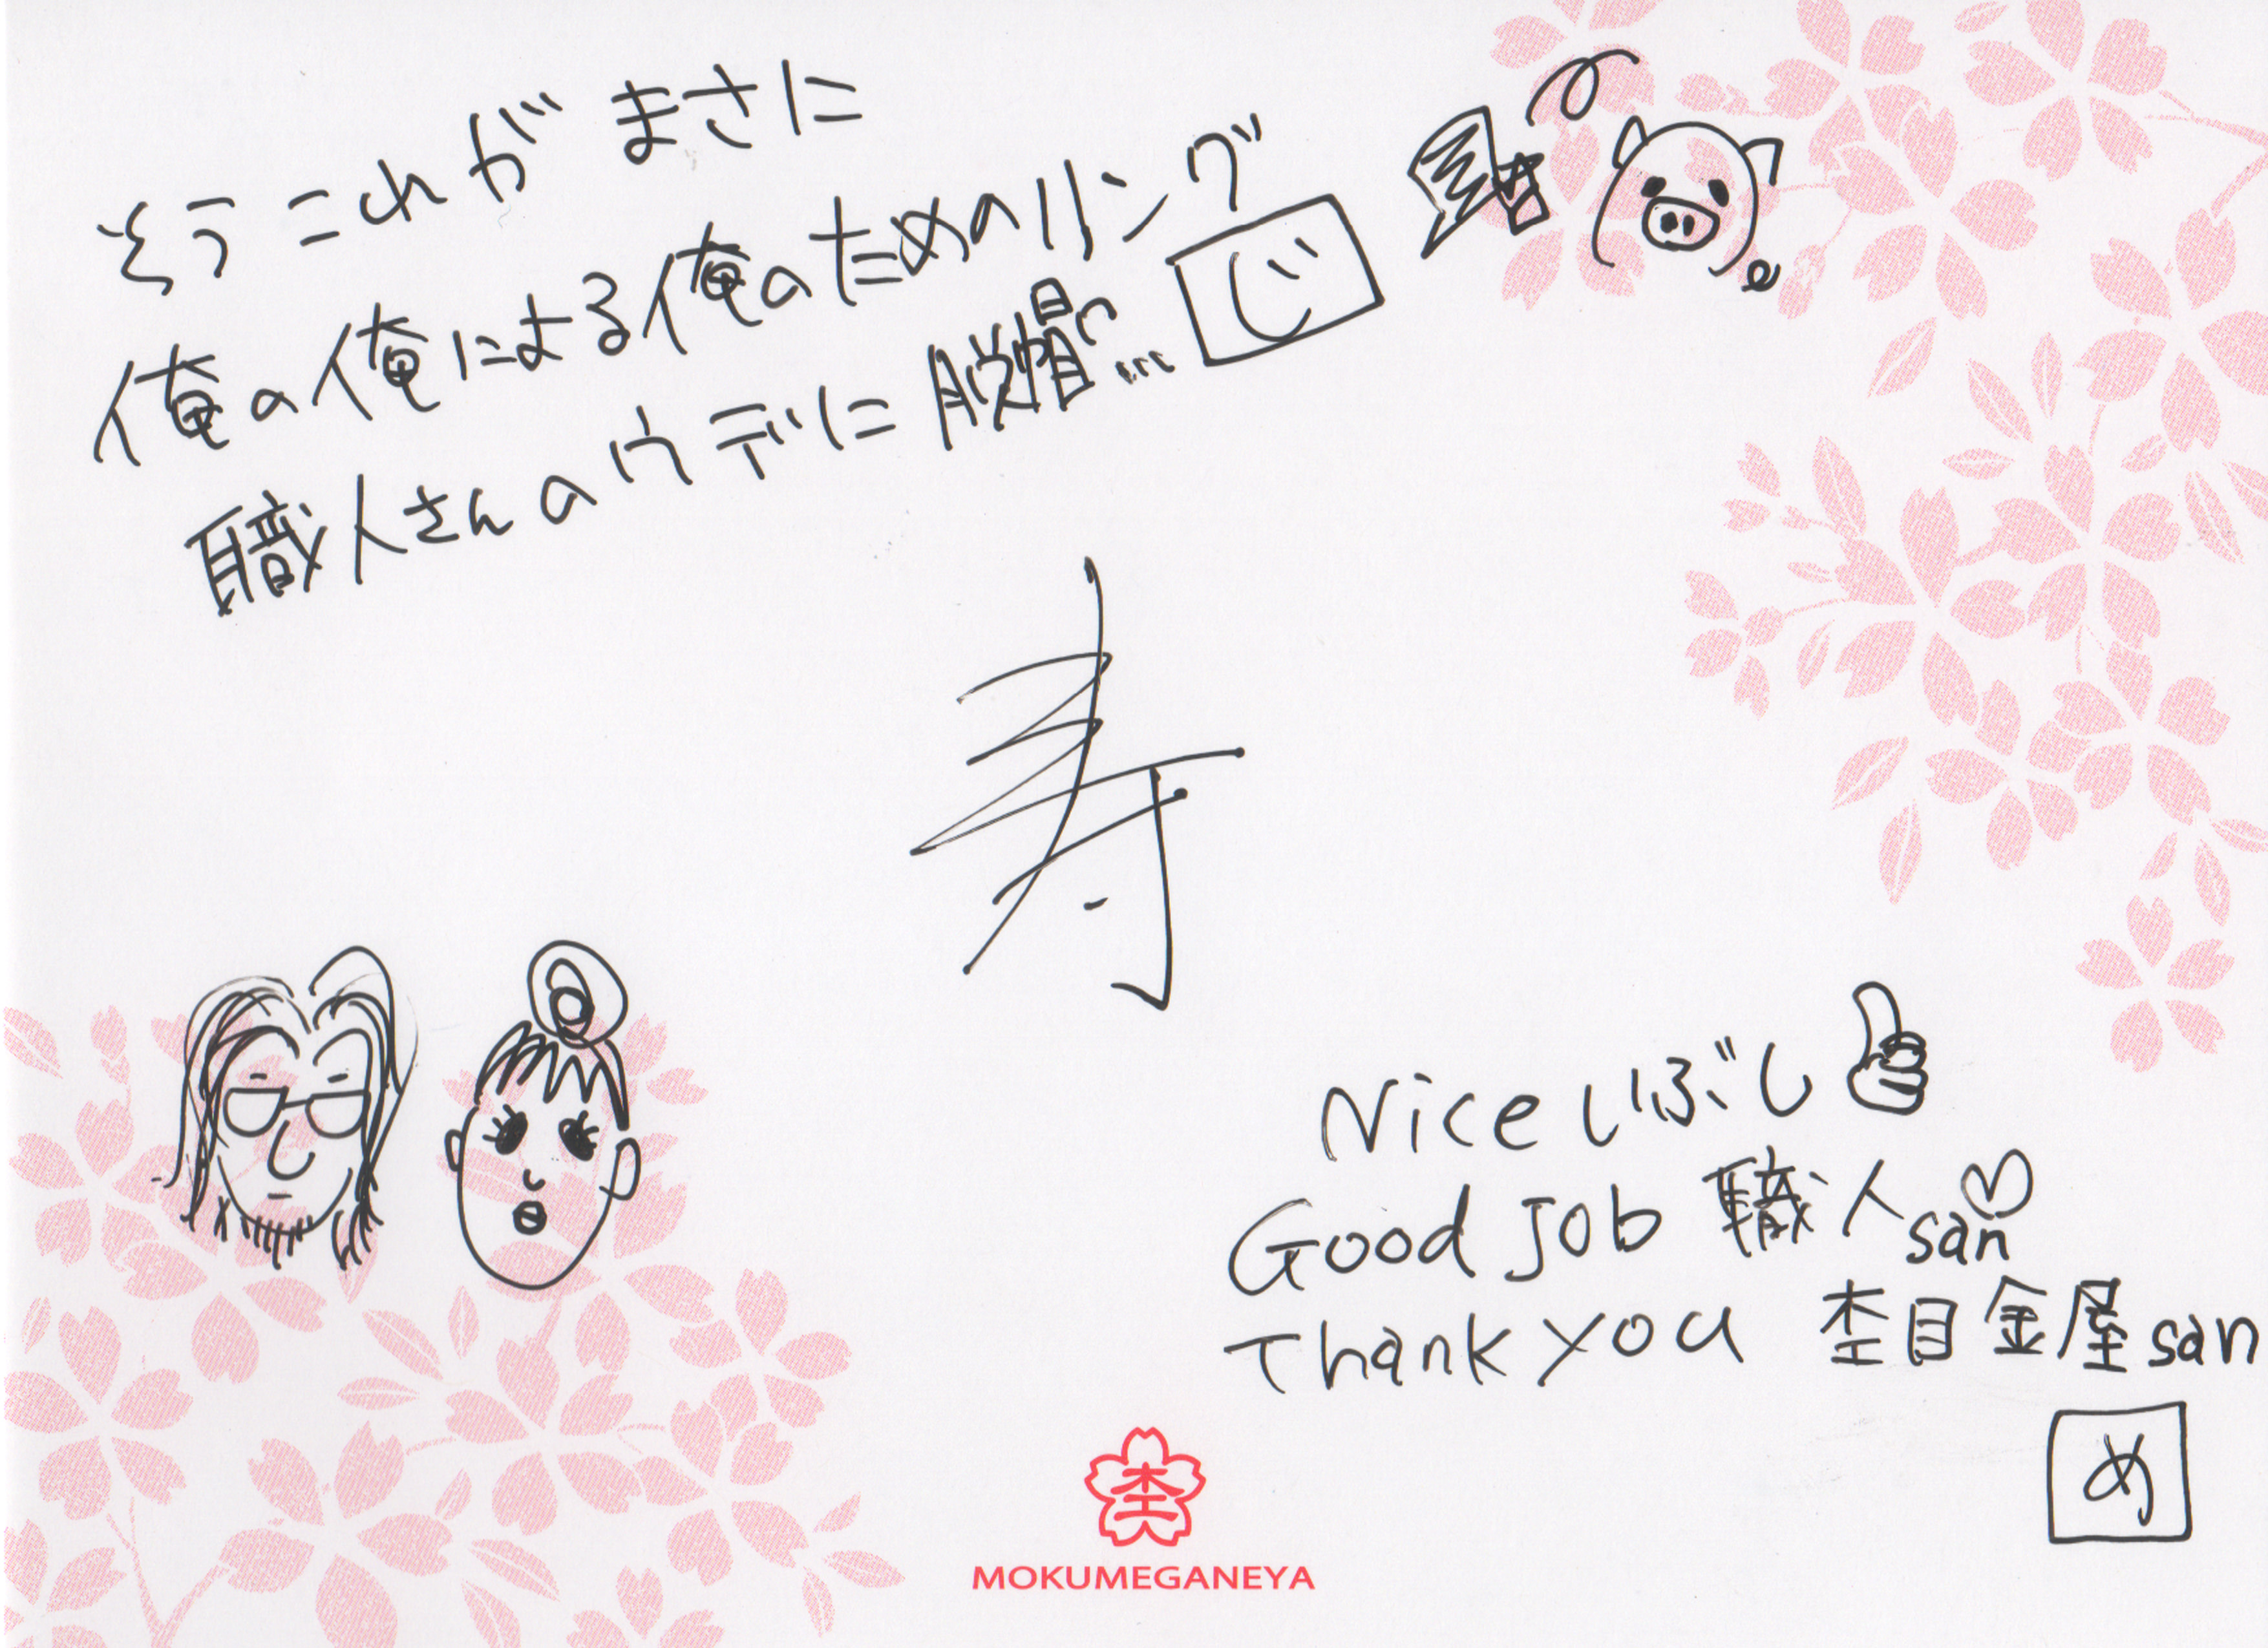 そうこれがまさに
俺の俺による俺のためのリング
職人さんのウデに脱帽… じ
寿
Nice いぶし
Good Job 職人san
Thank you 杢目金屋san
め
杢
MOKUMEGANEYA